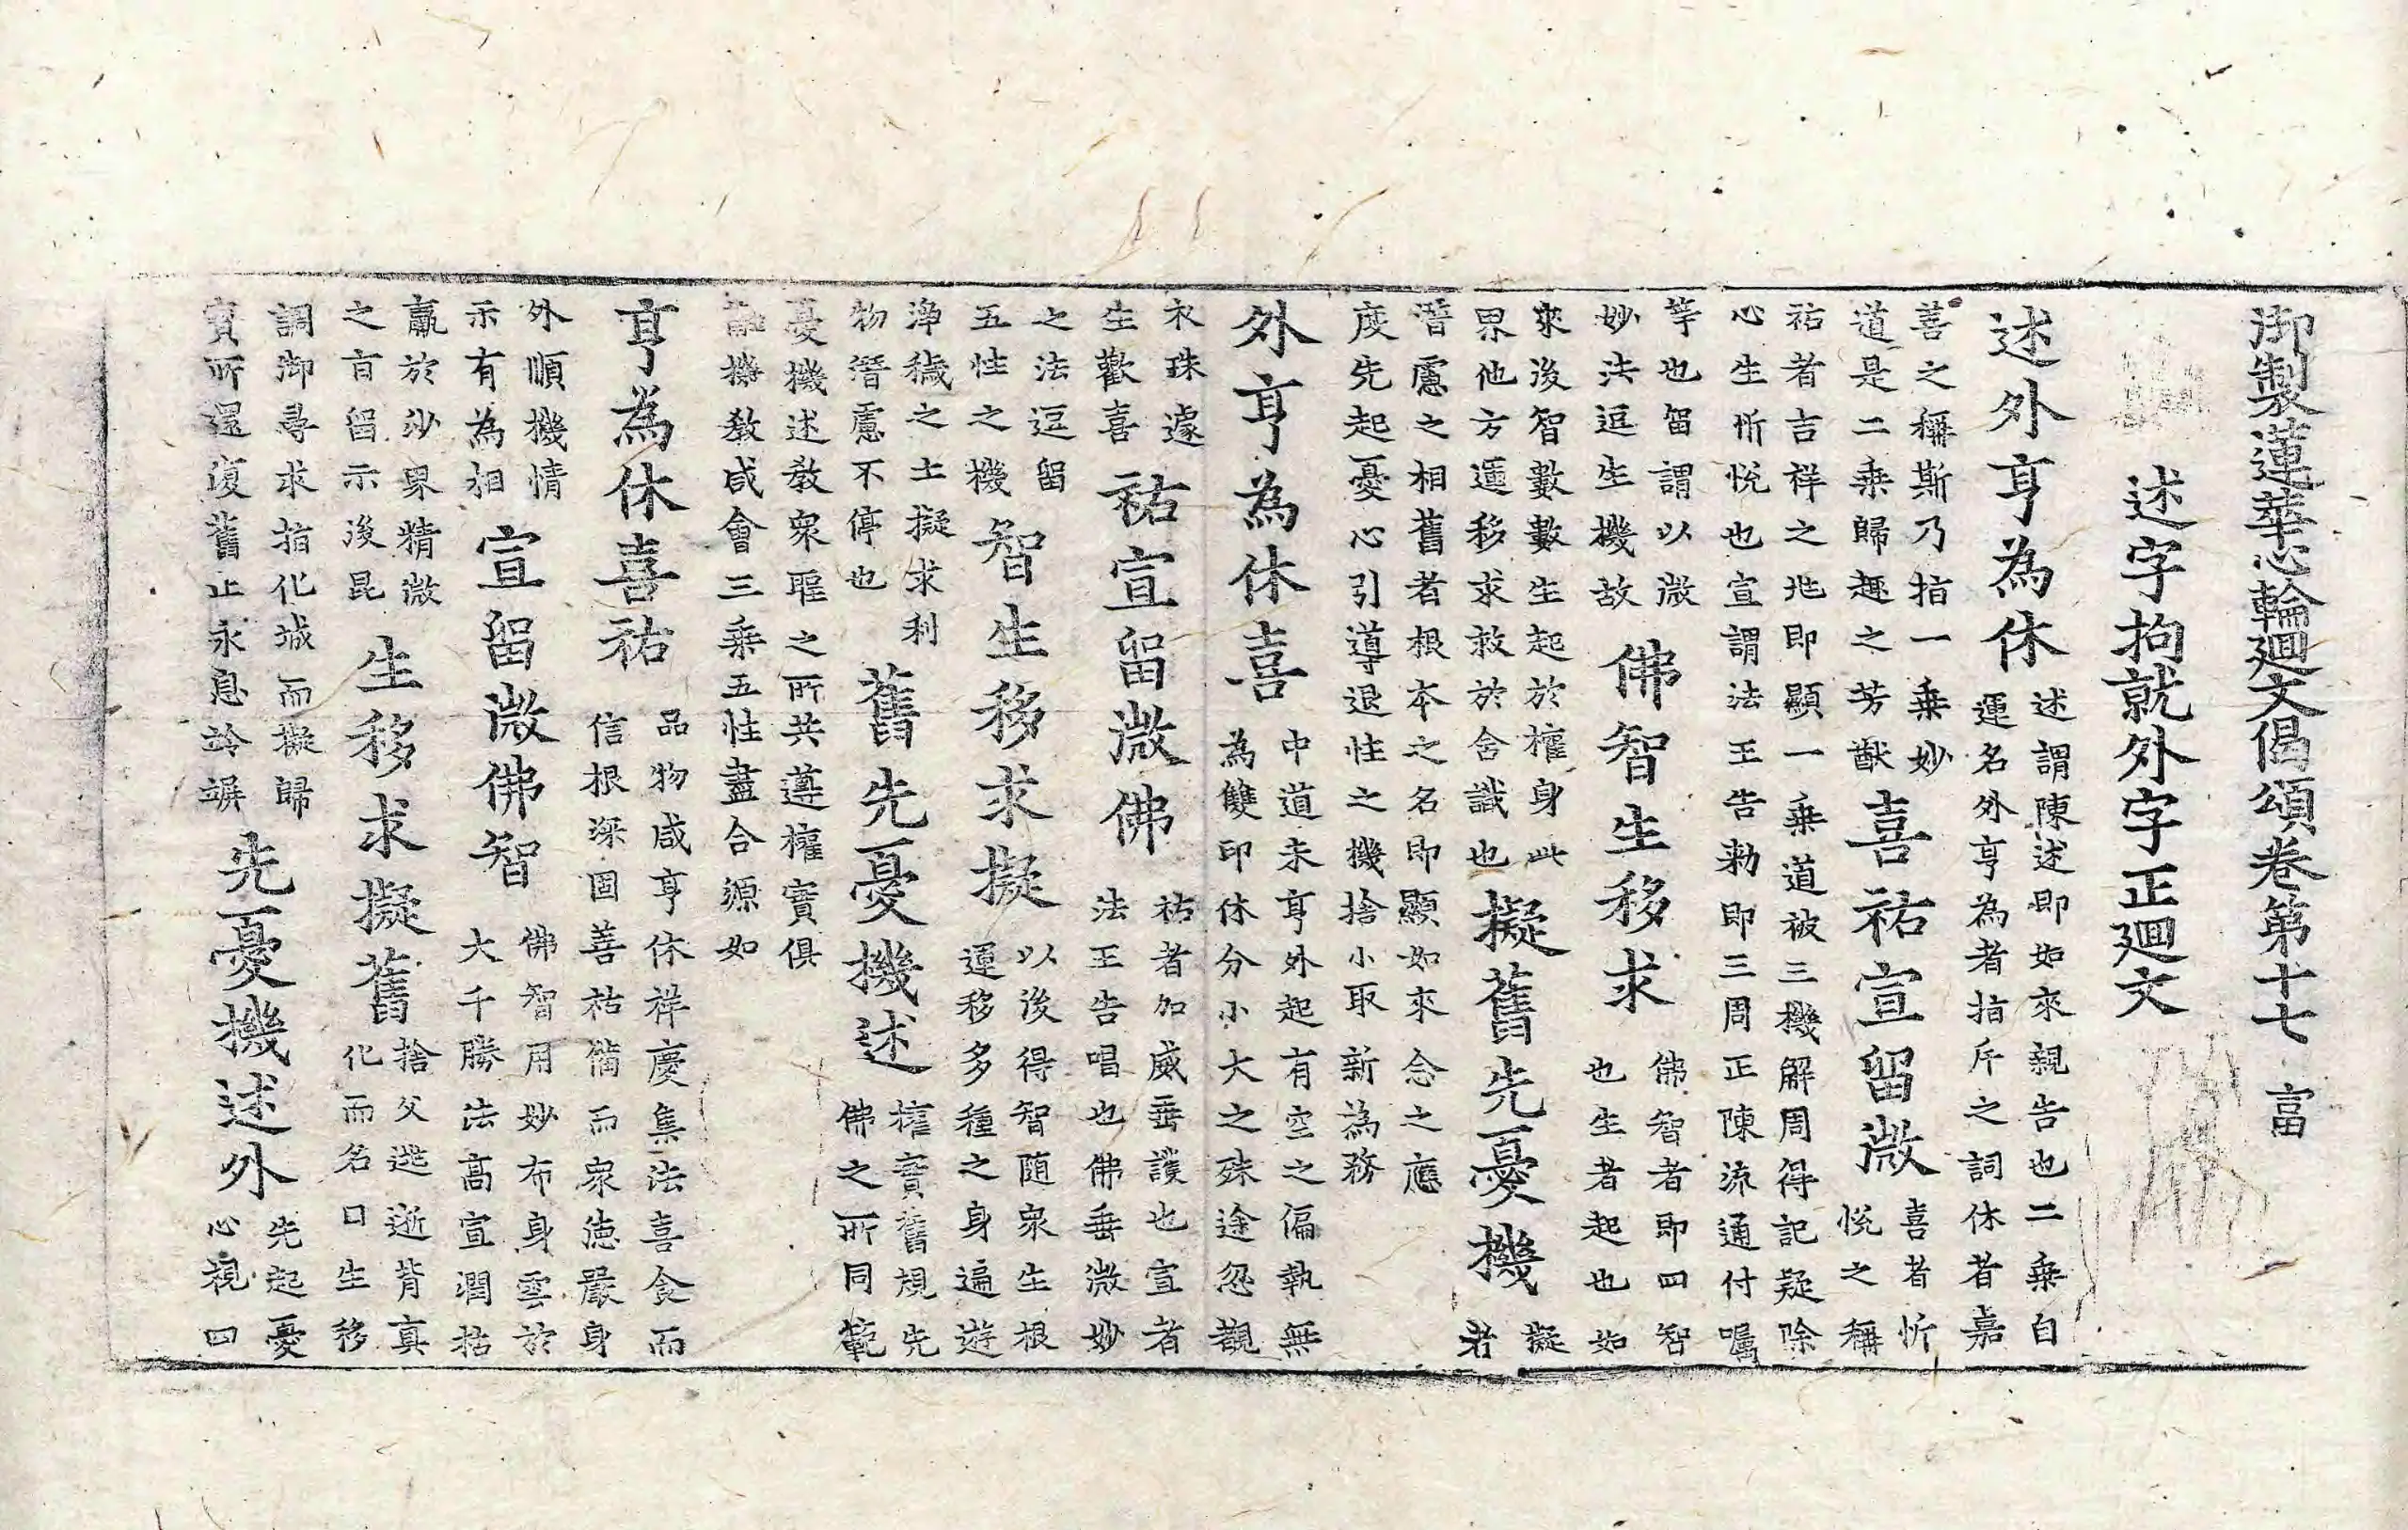 御製蓮華心輪廻文偈頌卷第十七 富
述字拘就外字正廻文
述外亨為休
述謂陳述即如來親告也二乗自
運名外亨為者指斥之詞休者嘉
善之稱斯乃指一乗妙
道是二乗歸趣之芳猷
喜祐宣留微
喜者忻
悅之稱
祐者吉祥之兆即顯一乗道被三機解周得記疑除
心生忻悅也宣謂法王告勑即三周正陳流通付囑
等也留謂以微
妙法逗生機故
佛智生移求
佛智者即四智
也生者起也如
來後智數數生起於權身此
界他方運移求救於含識也
擬舊先憂機
擬
者
潛慮之相舊者根本之名即顯如來念之應
度先起憂心引導退性之機捨小取新為務
外亨為休喜
中道未亨外起有空之偏執無
為雙印休分小大之殊途忽覩
衣珠遽
生歡喜
祐宣留微佛
祐者加威垂護也宣者
法王告唱也佛垂微妙
之法逗留
五性之機
智生移求擬
以後得智随衆生根
運移多種之身遍遊
淨穢之土擬求利
物潛慮不停也
舊先憂機述
權實舊規先
佛之所同範
憂機述教衆聖之所共遵權實俱
機教咸會三乗五性盡合源如
亨為休喜祐
品物咸亨休祥慶集法喜食而
信根深固善祐備而衆德嚴身
外順機情
示有為相
宣留微佛智
佛智用妙布身雲於
大千勝法高宣潤枯
羸於沙界精微
之旨留示後昆
生移求擬舊
捨父逃逝背真
化而名曰生移
調御尋求指化城而擬歸
寳所還復舊止永息竛竮
先憂機述外
先起憂
心視四